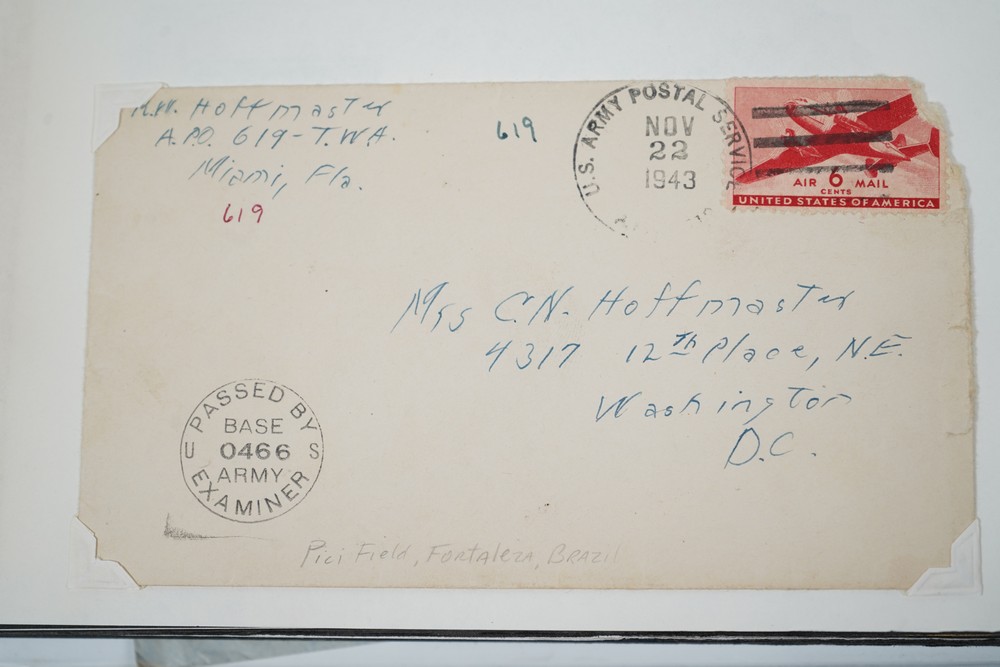 R.W. Hoffmaster
A.P.O. 619-T.W.A.
Miami, Fla.
619
619
U.S. ARMY POSTAL SERVICE
NOV
22
1943
AIR 6 MAIL
CENTS
UNITED STATES OF AMERICA
Mrs C.N. Hoffmaster
4317 12th Place, N.E.
Washington
D.C.
PASSED BY
BASE
U 0466 S
ARMY
EXAMINER
Pici Field, Fortaleza, Brazil